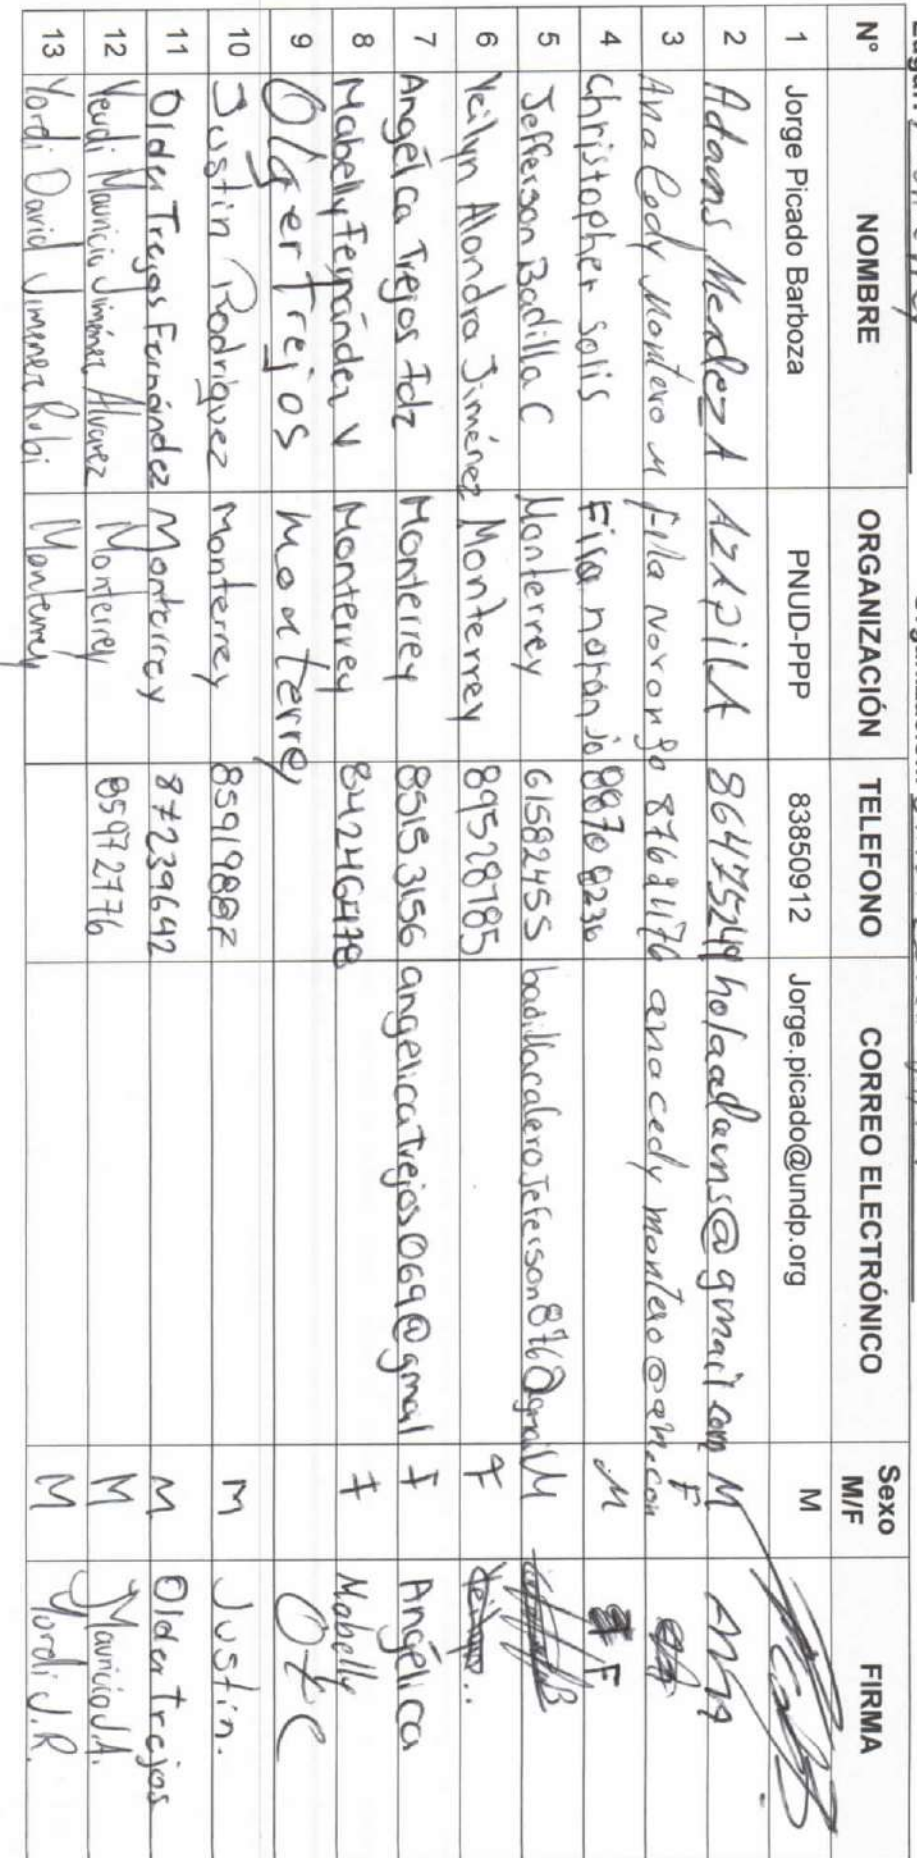 N° NOMBRE ORGANIZACIÓN TELEFONO CORREO ELECTRÓNICO Sexo M/F FIRMA
1 Jorge Picado Barboza PNUD-PPP 83850912 Jorge.picado@undp.org M
2 Adams Mendez A AZAPILA 86475249 holaadams@gmail.com M
3 Ana Cedy Montero M fila 87621176 anacedy montero@ F
4 Christopher Solis Fila naranjo 8870 8236 M F
5 Jefferson Badilla C Monterrey 61582455 badillacaleroJeferson876@gmail M
6 Yeilyn Alondra Jiménez Monterrey 89528785 F
7 Angélica Trejos Fdz Monterrey 8515 3156 angelicaTrejos069@gmal F Angélica
8 Mabelly Fernández V Monterrey 84246478 F Mabelly
9 Olger Trejos Monterrey
10 Justin Rodriguez Monterrey 85919887 M Justin.
11 Older Trejos Fernández Monterrey 87239642 M Older trejos
12 Yeudi Mauricio Jiménez Alvarez Monterrey 85972776 M Mauricio J.A.
13 Yordi David Jimenez Rubi Monterrey M Yordi J.R.